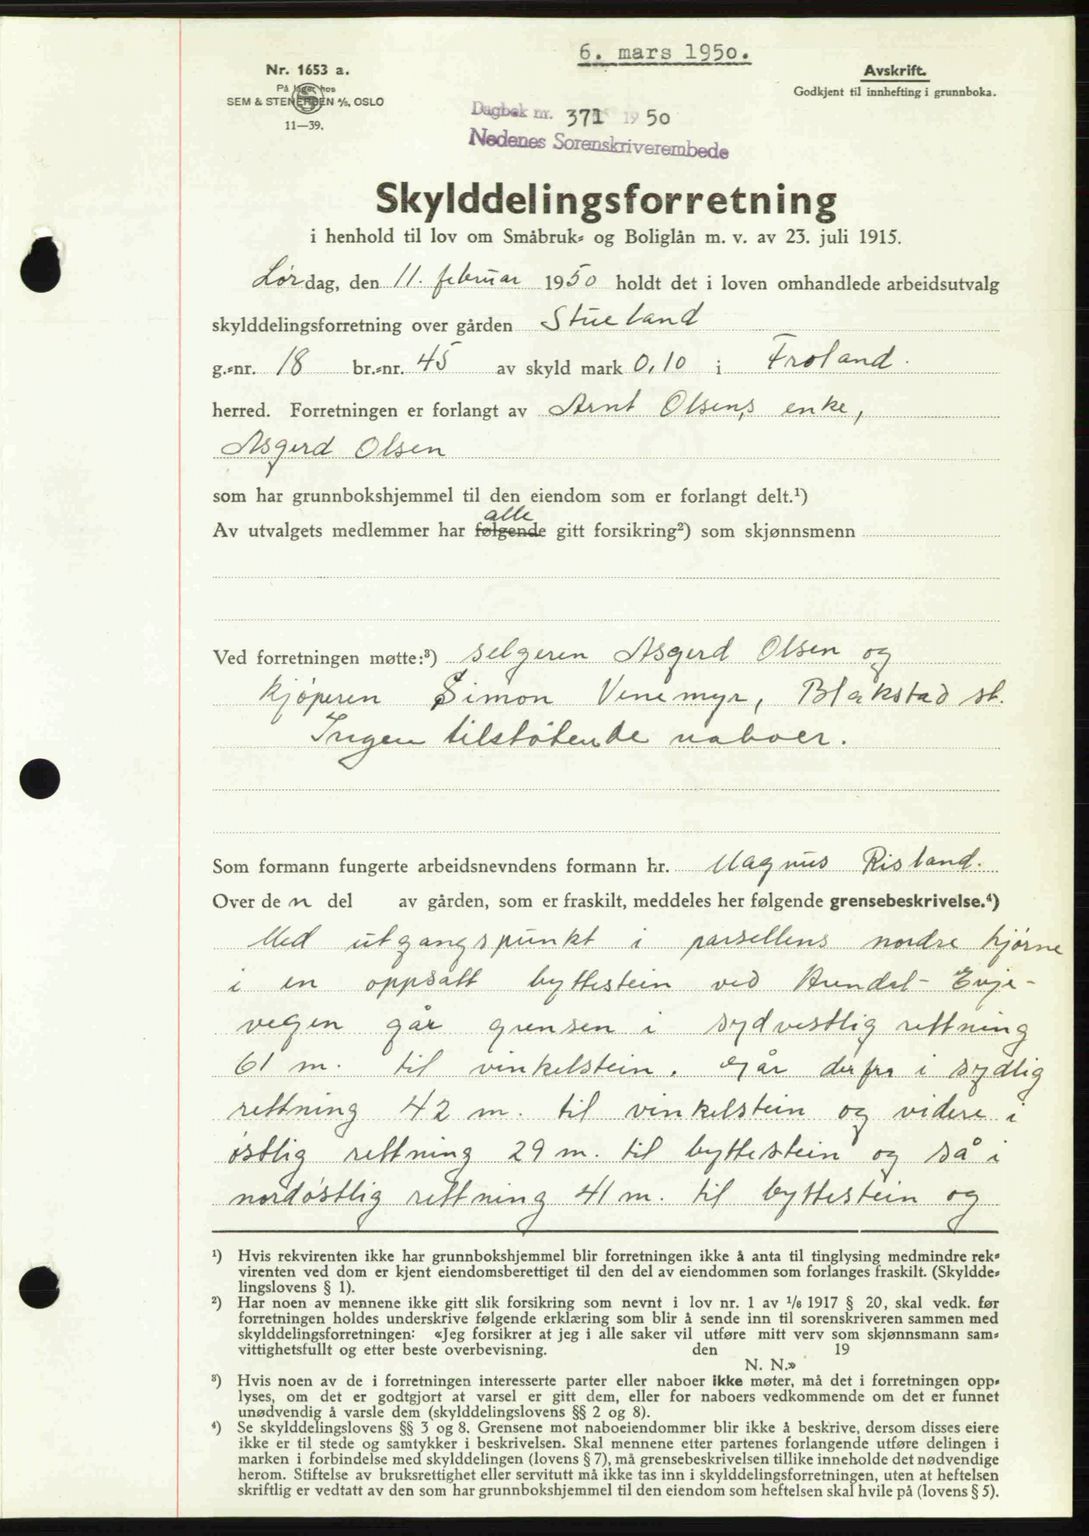 6. mars 1950.
Nr. 1653 a.
På lager hos
SEM & STENERSEN A/S, OSLO
11—39.
Avskrift.
Godkjent til innhefting i grunnboka.
Dagbok nr. 371 1950
Nedenes Sorenskriverembede
Skylddelingsforretning
i henhold til lov om Småbruk- og Boliglån m. v. av 23. juli 1915.
Lørdag, den 11. februar 1950 holdt det i loven omhandlede arbeidsutvalg
skylddelingsforretning over gården Stueland
g.-nr. 18 br.-nr. 45 av skyld mark 0,10 i Froland.
herred. Forretningen er forlangt av Arnt Olsens enke,
Asgerd Olsen
som har grunnbokshjemmel til den eiendom som er forlangt delt.¹)
alle
Av utvalgets medlemmer har følgende gitt forsikring²) som skjønnsmenn
Ved forretningen møtte:³) selgeren Asgerd Olsen og
kjøperen Simon Venemyr, Blakstad st.
Ingen tilstøtende naboer.
Som formann fungerte arbeidsnevndens formann hr. Magnus Risland.
Over den del av gården, som er fraskilt, meddeles her følgende grensebeskrivelse.⁴)
Med utgangspunkt i parsellens nordre hjørne
i en oppsatt byttestein ved Arendal- Evje-
vegen går grensen i sydvestlig rettning
61 m. til vinkelstein. Går derfra i sydlig
rettning 42 m. til vinkelstein og videre i
østlig rettning 29 m. til byttestein og så i
nordøstlig rettning 41 m. til byttestein og
¹) Hvis rekvirenten ikke har grunnbokshjemmel blir forretningen ikke å anta til tinglysing medmindre rek-
virenten ved dom er kjent eiendomsberettiget til den del av eiendommen som forlanges fraskilt. (Skyldde-
lingslovens § 1).
²) Har noen av mennene ikke gitt slik forsikring som nevnt i lov nr. 1 av 1/6 1917 § 20, skal vedk. før
forretningen holdes underskrive følgende erklæring som blir å sende inn til sorenskriveren sammen med
skylddelingsforretningen: «Jeg forsikrer at jeg i alle saker vil utføre mitt verv som skjønnsmann sam-
vittighetsfullt og etter beste overbevisning. den 19
N. N.»
³) Hvis noen av de i forretningen interesserte parter eller naboer ikke møter, må det i forretningen opp-
lyses, om det er godtgjort at varsel er gitt dem, eller for naboers vedkommende om det er funnet
unødvendig å varsle dem (skylddelingslovens §§ 2 og 8).
⁴) Se skylddelingslovens §§ 3 og 8. Grensene mot naboeiendommer blir ikke å beskrive, dersom disses eiere
ikke er til stede og samtykker i beskrivelsen. Skal mennene etter partenes forlangende utføre delingen i
marken i forbindelse med skylddelingen (lovens § 7), må grensebeskrivelsen tillike inneholde det nødvendige
herom. Stiftelse av bruksrettighet eller servitutt må ikke tas inn i skylddelingsforretningen, uten at heftelsen
skriftlig er vedtatt av den som har grunnbokshjemmel til den eiendom som heftelsen skal hvile på (lovens § 5).